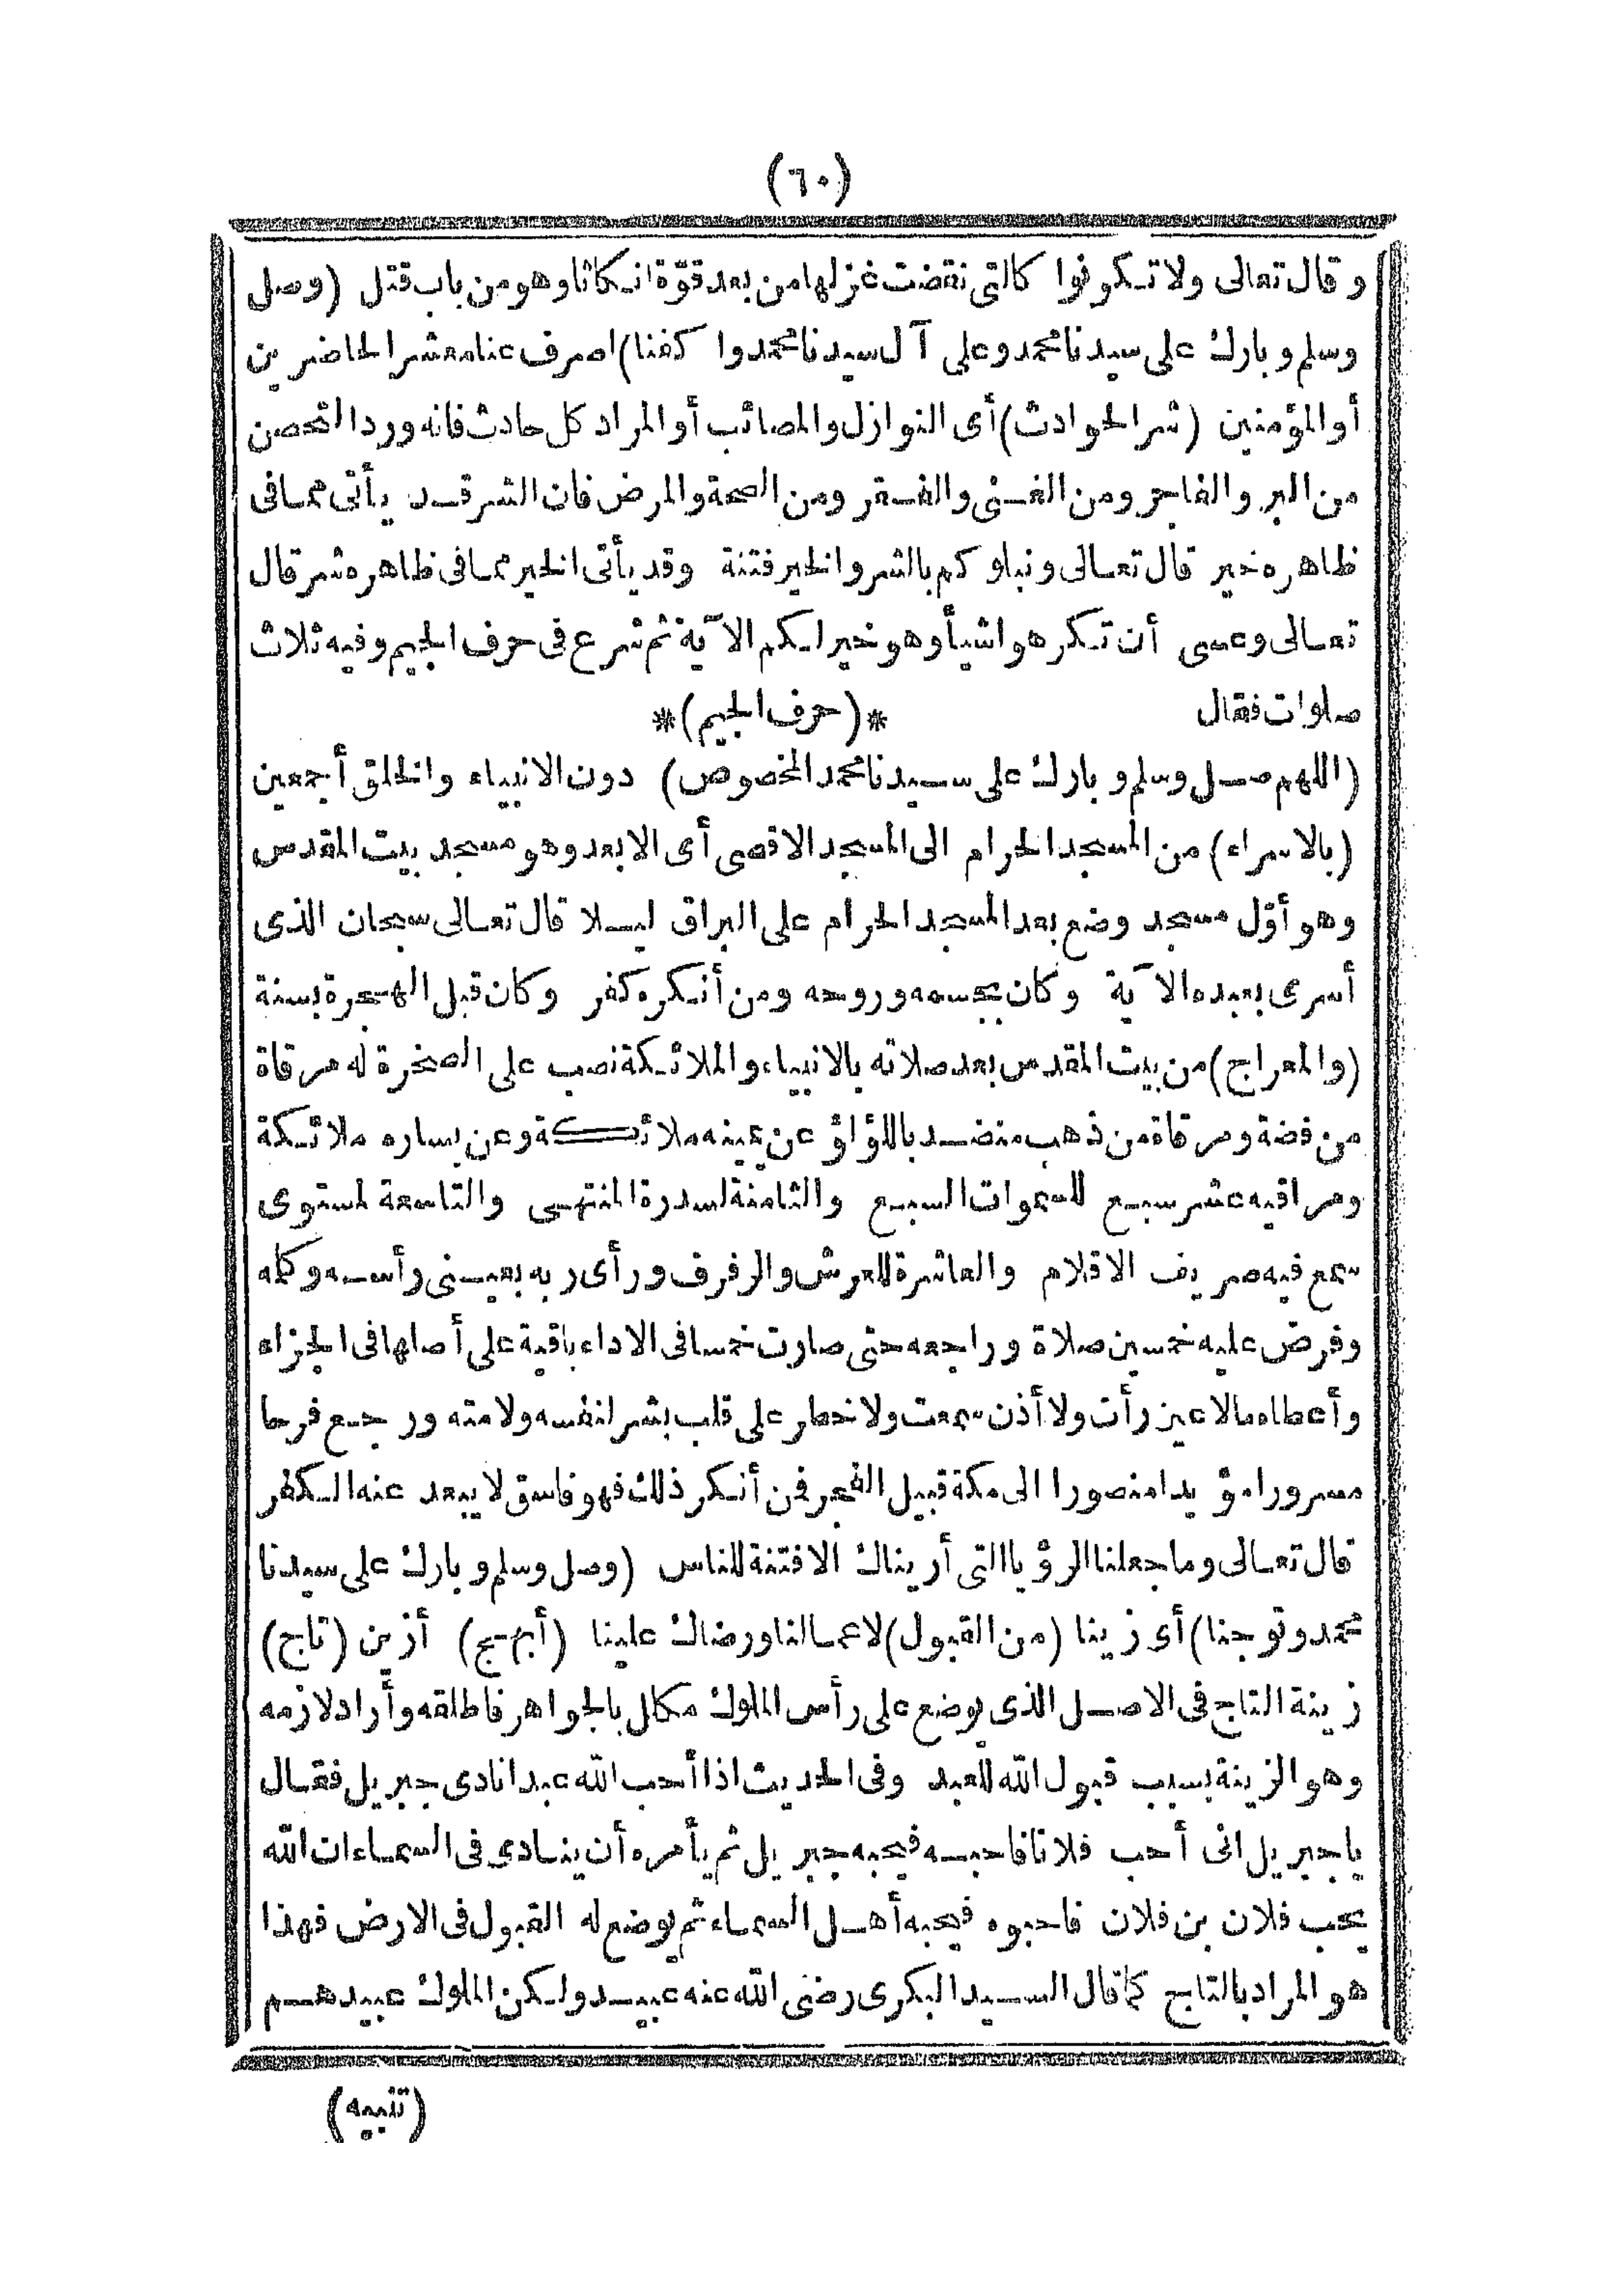 (٦٠)
وقال تعالى ولا تكونوا كالتى نقضت غزلها من بعد قوّة انكاثا وهو من باب قتل (وصل
وسلم وبارك على سيدنا محمد وعلى آل سيدنا محمد واكفنا) اصرف عنا معشر الحاضرين
أو المؤمنين (شر الحوادث) أى النوازل والمصائب أو المراد كل حادث فانه ورد التحصن
من البر والفاجر ومن الغنى والفقر ومن الصحة والمرض فان الشر قد يأتى مما فى
ظاهره خير قال تعالى ونبلوكم بالشر والخير فتنة وقد يأتى الخير مما فى ظاهره شر قال
تعالى وعسى أن تكرهوا شيأ وهو خير لكم الآية ثم شرع فى حرف الجيم وفيه ثلاث
صلوات فقال *(حرف الجيم)*
(اللهم صل وسلم وبارك على سيدنا محمد المخصوص) دون الانبياء والخلق أجمعين
(بالاسراء) من المسجد الحرام الى المسجد الاقصى أى الابعد وهو مسجد بيت المقدس
وهو أوّل مسجد وضع بعد المسجد الحرام على البراق ليلا قال تعالى سبحان الذى
أسرى بعبده الآية وكان بجسمه وروحه ومن أنكره كفر وكان قبل الهجرة بسنة
(والمعراج) من بيت المقدس بعد صلاته بالانبياء والملائكة نصب على الصخرة له مرقاة
من فضة ومرقاة من ذهب منضد باللؤلؤ عن يمينه ملائكة وعن يساره ملائكة
ومراقيه عشر سبع للسموات السبع والثامنة لسدرة المنتهى والتاسعة لمستوى
سمع فيه صريف الاقلام والعاشرة للعرش والرفرف ورأى ربه بعينى رأسه وكلمه
وفرض عليه خمسين صلاة وراجعه حتى صارت خمسا فى الاداء باقية على أصلها فى الجزاء
وأعطاه مالا عين رأت ولا أذن سمعت ولا خطر على قلب بشر لنفسه ولامته ورجع فرحا
مسرورا مؤيدا منصورا الى مكة قبيل الفجر فمن أنكر ذلك فهو فاسق لا يبعد عنه الكفر
قال تعالى وما جعلنا الرؤيا التى أريناك الا فتنة للناس (وصل وسلم وبارك على سيدنا
محمد وتوجنا) أى زينا (من القبول) لاعمالنا ورضاك علينا (أبهج) أزين (تاج)
زينة التاج فى الاصل الذى يوضع على رأس الملوك مكلل بالجواهر فاطلقه وأراد لازمه
وهو الزينة بسبب قبول الله للعبد وفى الحديث اذا أحب الله عبدا نادى جبريل فقال
يا جبريل انى أحب فلانا فاحبه فيحبه جبريل ثم يأمره أن ينادى فى السماء ان الله
يحب فلان بن فلان فاحبوه فيحبه أهل السماء ثم يوضع له القبول فى الارض فهذا
هو المراد بالتاج كما قال السيد البكرى رضى الله عنه عبيد ولكن الملوك عبيدهم
(تنبيه)